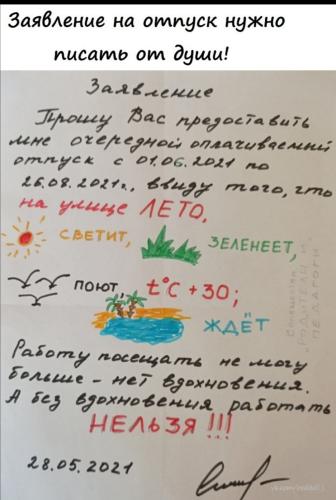 Заявление на отпуск нужно
писать от души!
Заявление
Прошу Вас предоставить
мне очередной оплачиваемый
отпуск с 01.06.2021 по
26.08.2021г., ввиду того, что
на улице ЛЕТО,
СВЕТИТ,
ЗЕЛЕНЕЕТ,
ПОЮТ, t°C +30;
ЖДЁТ
Работу посещать не могу
больше - нет вдохновения.
А без вдохновения работать
НЕЛЬЗЯ!!!
28.05.2021
РОДИТЕЛИ И
ПЕДАГОГИ